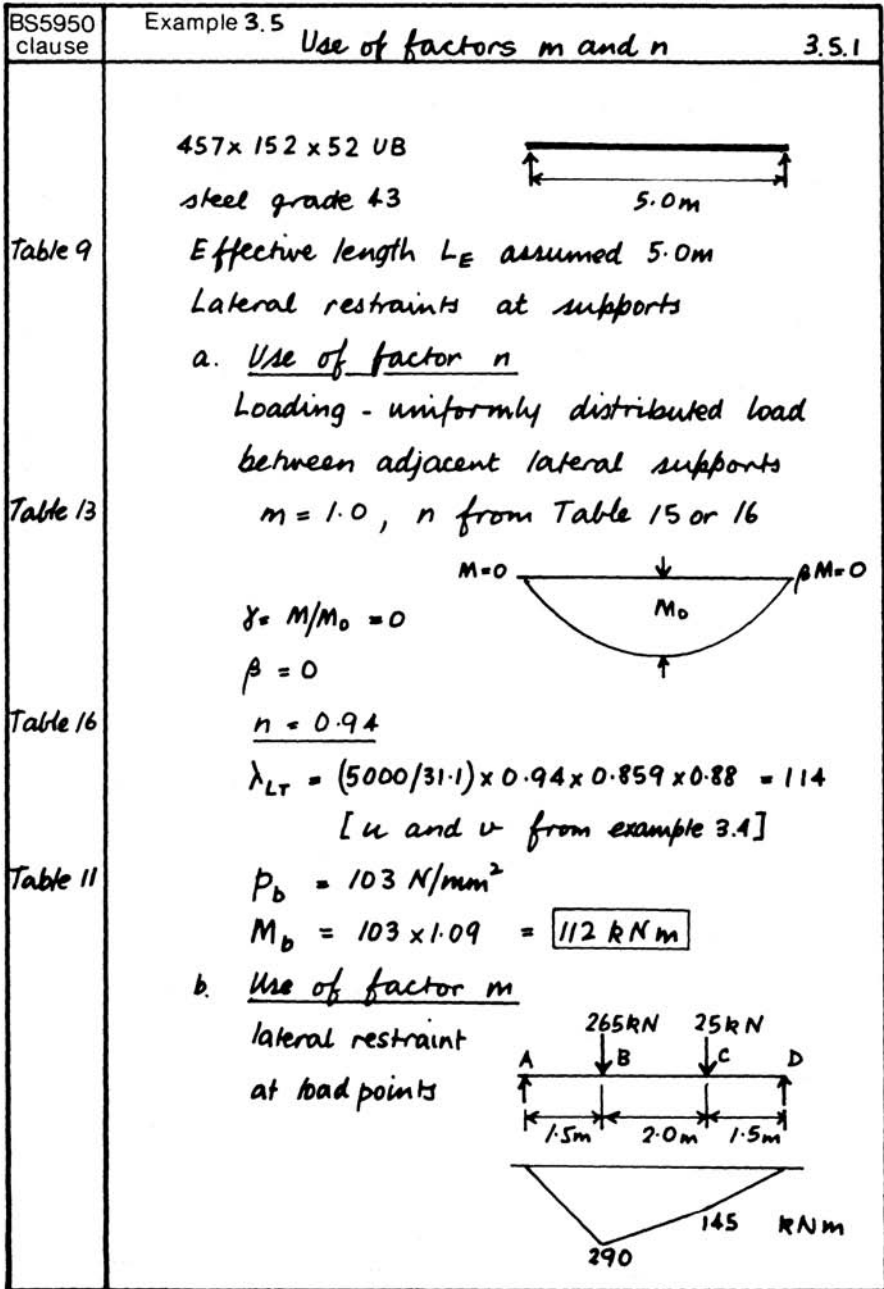 BS5950 clause
Example 3.5
Use of factors m and n
3.5.1
457 x 152 x 52 UB
steel grade 43
5.0m
Table 9
Effective length L_E assumed 5.0m
Lateral restraints at supports
a. Use of factor n
Loading - uniformly distributed load
between adjacent lateral supports
Table 13
m = 1.0, n from Table 15 or 16
M=0
βM=0
M₀
γ = M/M₀ = 0
β = 0
Table 16
n = 0.94
λ_LT = (5000/31.1) x 0.94 x 0.859 x 0.88 = 114
[u and v from example 3.4]
Table 11
p_b = 103 N/mm²
M_b = 103 x 1.09 = 112 kNm
b. Use of factor m
lateral restraint
at load points
265kN 25kN
A B C D
1.5m 2.0m 1.5m
145 kNm
290